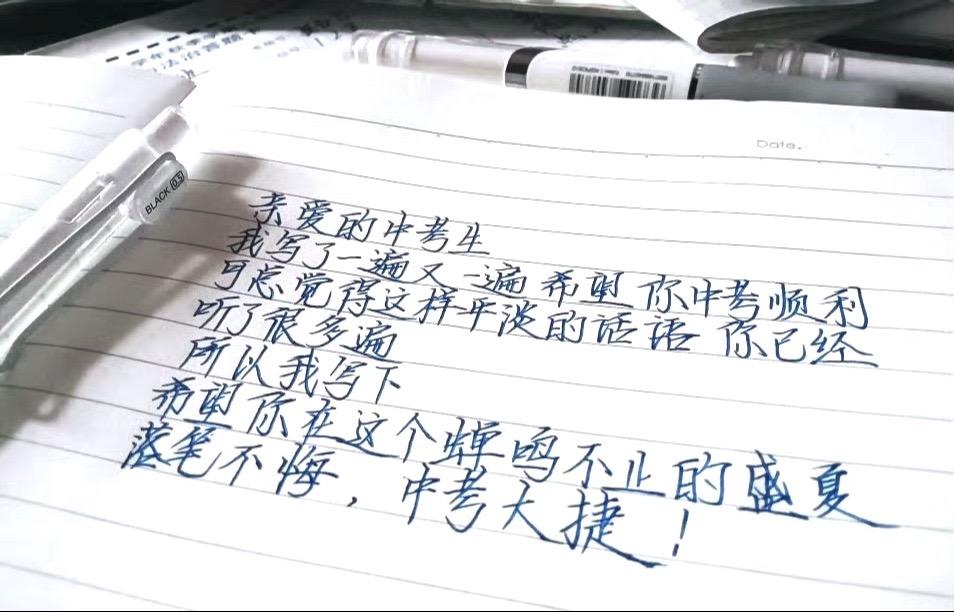 Date.
BLACK 0.5
亲爱的中考生
我写了一遍又一遍希望你中考顺利
可总觉得这样平淡的话语 你已经
听了很多遍
所以我写下
希望你在这个蝉鸣不止的盛夏
落笔不悔，中考大捷！